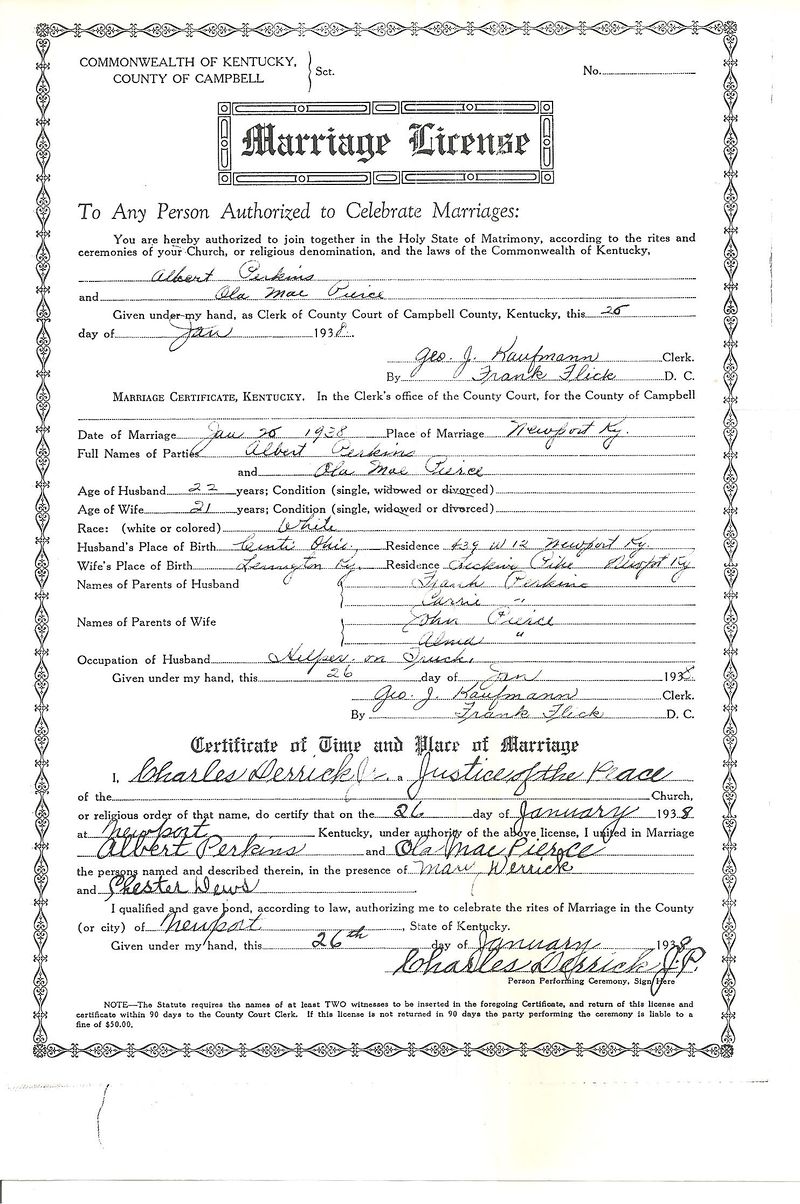 COMMONWEALTH OF KENTUCKY,
COUNTY OF CAMPBELL
Sct.
No.
Marriage License
To Any Person Authorized to Celebrate Marriages:
You are hereby authorized to join together in the Holy State of Matrimony, according to the rites and
ceremonies of your Church, or religious denomination, and the laws of the Commonwealth of Kentucky,
Albert Perkins
and Ola Mae Pierce
Given under my hand, as Clerk of County Court of Campbell County, Kentucky, this 26
day of Jan 1938.
Geo. J. Kaufmann Clerk.
By Frank Flick D. C.
MARRIAGE CERTIFICATE, KENTUCKY. In the Clerk's office of the County Court, for the County of Campbell
Date of Marriage Jan 26 1938 Place of Marriage Newport Ky.
Full Names of Parties Albert Perkins
and Ola Mae Pierce
Age of Husband 22 years; Condition (single, widowed or divorced)
Age of Wife 21 years; Condition (single, widowed or divorced)
Race: (white or colored) White
Husband's Place of Birth Cinti Ohio, Residence 439 W 12 Newport Ky.
Wife's Place of Birth Lexington Ky. Residence Licking Pike Newpot Ky
Names of Parents of Husband Frank Perkins
Carrie "
Names of Parents of Wife John Pierce
Alma "
Occupation of Husband Helper on Truck.
Given under my hand, this 26 day of Jan 1938.
Geo. J. Kaufmann Clerk.
By Frank Flick D. C.
Certificate of Time and Place of Marriage
I, Charles Derrick Jr. a Justice of the Peace
of the Church,
or religious order of that name, do certify that on the 26 day of January 1938
at Newport Kentucky, under authority of the above license, I united in Marriage
Albert Perkins and Ola Mae Pierce
the persons named and described therein, in the presence of Mary Derrick
and Chester Dews
I qualified and gave bond, according to law, authorizing me to celebrate the rites of Marriage in the County
(or city) of Newport, State of Kentucky.
Given under my hand, this 26th day of January 1938
Charles Derrick J.P.
Person Performing Ceremony, Sign Here
NOTE—The Statute requires the names of at least TWO witnesses to be inserted in the foregoing Certificate, and return of this license and
certificate within 90 days to the County Court Clerk. If this license is not returned in 90 days the party performing the ceremony is liable to a
fine of $50.00.